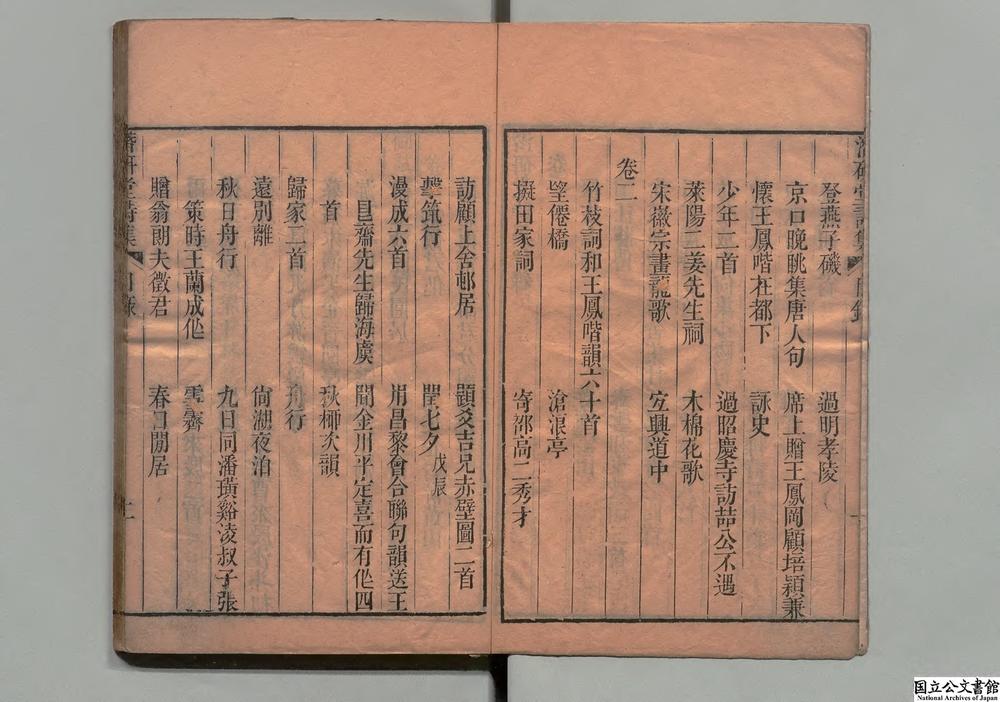 登燕子磯　過明孝陵
京口晚眺集唐人句　席上贈王鳳岡顧培穎兼
懷王鳳喈在都下　詠史
少年二首　過昭慶寺訪喆公不遇
萊陽二姜先生祠　木棉花歌
宋徽宗畫龍歌　宜興道中
卷二
竹枝詞和王鳳喈韻六十首
望僊橋　滄浪亭
擬田家詞　寄邵高二秀才
訪顧上舍邨居　題爻吉兄赤壁圖二首
擊筑行　閏七夕戊辰
漫成六首　用昌黎會合聯句韻送王
艮齋先生歸海虞　聞金川平定喜而有作四
首　秋柳次韻
歸家二首　舟行
遠別離　尙湖夜泊
秋日舟行　九日同潘璜谿凌叔子張
策時王蘭成作　雲齋
贈翁朗夫徵君　春日閒居
潛研堂詩集　目錄　二
国立公文書館
National Archives of Japan